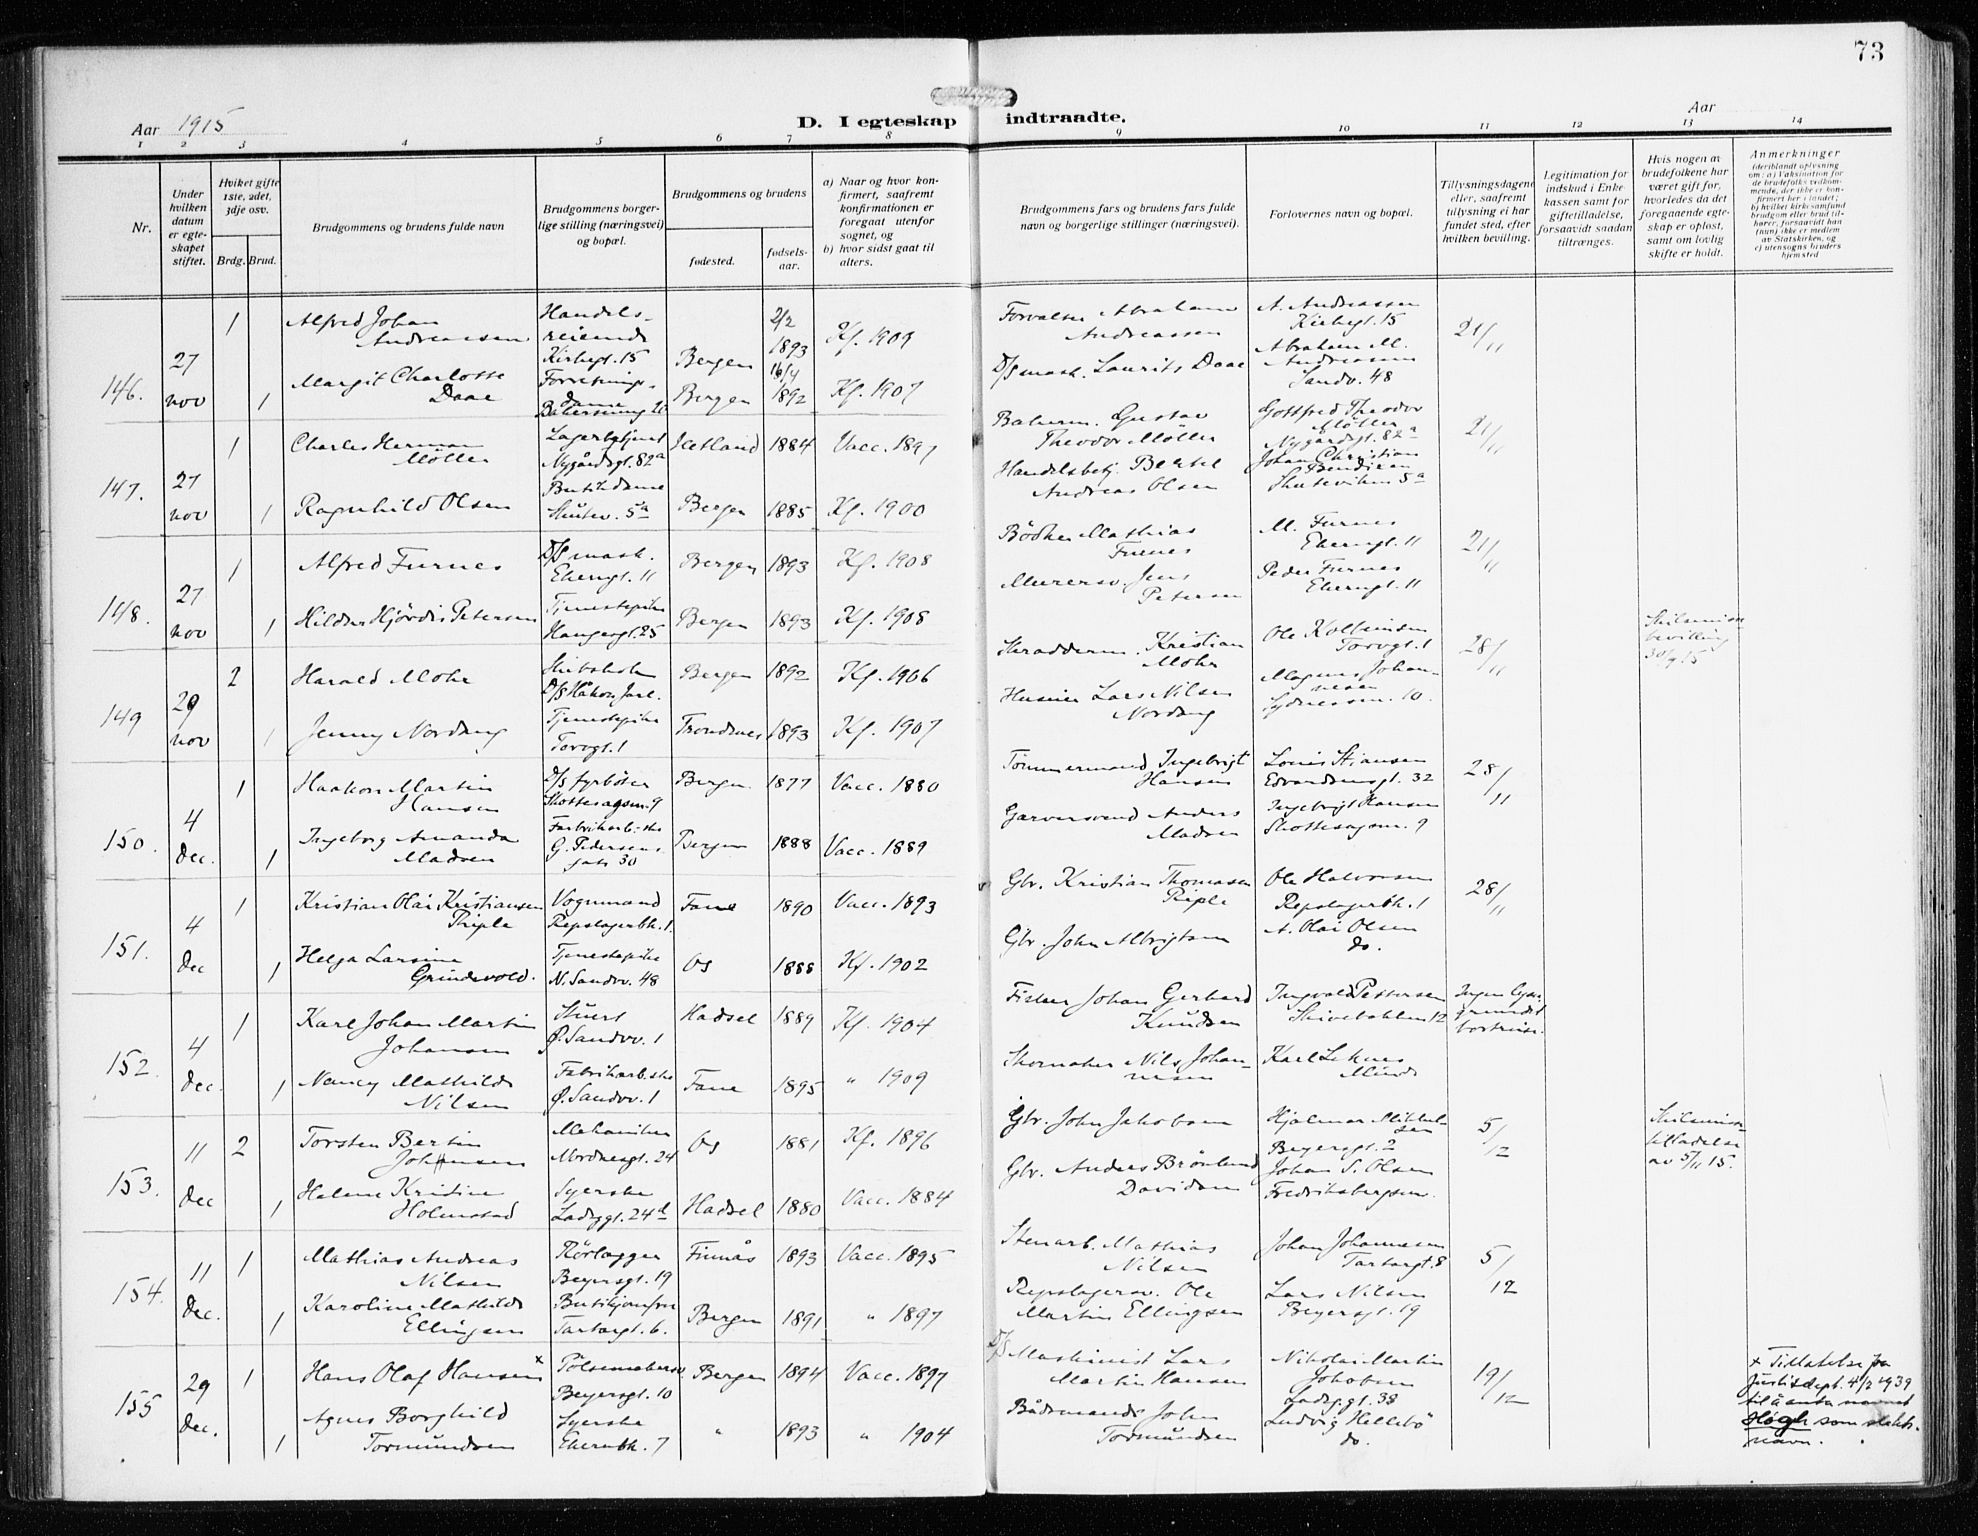 73
Aar 1915
D. I egteskap indtraadte.
Aar
1 2 3 4 5 6 7 8 9 10 11 12 13 14
Nr.
Under hvilken datum er egteskapet stiftet.
Hviket gifte 1ste, 2det, 3dje osv.
Brdg. Brud.
Brudgommens og brudens fulde navn
Brudgommens borgerlige stilling (næringsvei) og bopæl.
Brudgommens og brudens
fødested.
fødselsaar.
a) Naar og hvor konfirmert, saafremt konfirmationen er foregaat utenfor sognet, og
b) hvor sidst gaat til alters.
Brudgommens fars og brudens fars fulde navn og borgerlige stillinger (næringsvei).
Forlovernes navn og bopæl.
Tillysningsdagene eller, saafremt tillysning ei har fundet sted, efter hvilken bevilling.
Legitimation for indskud i Enkekassen samt for giftetilladelse, forsaavidt saadan tiltrænges.
Hvis nogen av brudefolkene har været gift før, hvorledes da det foregaaende egteskap er opløst, samt om lovlig skifte er holdt.
Anmerkninger
(deriblandt oplysning om: a) Vaksination for de brudefolks vedkommende, der ikke er konfirmert her i landet; b) hvilket kirkesamfund brudgom eller brud tilhører, forsaavidt han (hun) ikke er medlem av Statskirken, og c) utensogns bruders hjemsted
146. 27 nov 1 Alfred Johan Andreassen Handelsreisende Kirkegt. 15 Bergen 2/2 1893 Kf. 1909 Forvalter Abraham Andreassen A. Andreassen Kirkegt. 15 21/11
1 Margit Charlotte Daae Forretningsdame Bergen 16/4 1892 Kf. 1907 D/S mask. Laurits Daae Abraham M. Andreassen Sandv. 48
147. 27 nov 1 Charles Herman Möller Lagerbetjent Nygårdsgt. 82a Isetland 1884 Vacc. 1897 Gustav Theodor Möller Gottfred Theodor Möller Nygårdsgt. 82a 21/11
1 Ragnhild Olsen Butikdame Skutev. 5a Bergen 1885 Kf. 1900 Handelsbetj. Bertel Andreas Olsen Johan Christian Bendixen Skuteviken 5a
148. 27 nov 1 Alfred Furnes D/S mask. Ekerngt. 11 Bergen 1893 Kf. 1908 Bödker Mathias Furnes M. Furnes Ekerngt. 11 21/11
1 Hildur Hjördis Petersen Tjenestepike Haugergt. 25 Bergen 1893 Kf. 1908 Murersv. Jens Petersen Peder Furnes Ekerngt. 11
149 29 nov 2 Harald Mohr D/S Håkon Jarl. Bergen 1892 Kf. 1906 Skrædderm. Kristian Mohr Ole Kolbeinsen Torvgt. 1 28/11 Skilsmissebevilling 30/9 15
1 Jenny Nordang Tjenestepike Torvgt. 1 Trondenes 1893 Kf. 1907 Lars Nilsen Nordang Magnus Johannesen Sydnessm. 10.
150. 4 Dec. 1 Haakon Martin Hansen D/S fyrböter Skottesagsm. 9 Bergen 1877 Vacc. 1880 Tömmermand Ingebrigt Hansen Edvardsensgt. 32 28/11
1 Ingeborg Amanda Madsen Fabrikarb.ske G. Pedersens gate 30 Bergen 1888 Vacc. 1889 Garversvend Anders Madsen Ingebrigt Hansen Skottesagsm. 9
151. 4 Dec 1 Kristian Olai Kristiansen Riple Vognmand Repslagerbk. 1. Fane 1890 Vacc. 1893 Gbr. Kristian Thomasen Riple Ole Halvorsen Repslagerbk. 1 28/11
1 Helga Larsine Grindevold. Tjenestepike N. Sandvv. 48 Os 1888 Kf. 1902 Gbr. John Albrigtsen A. Olai Olsen do.
152. 4 Dec. 1 Karl Johan Martin Johansen Stuert Ø. Sandvv. 1 Hadsel 1889 Kf. 1904 Fisker Johan Gerhard Knudsen Ingvald Pettersen Skivebakken 12 Ingen lysn. grundet bortreise.
1 Nancy Mathilde Nilsen Fabrikarb.ske Ø. Sandvv. 1 Fane 1895 " 1909 Skomaker Nils Johannesen Karl Leknes
153. 11 Dec 2 Torsten Bertin Johansen Mekaniker Nordnesgt. 24 Os 1881 Kf. 1896 Gbr. John Jakobsen Hjalmar Mikkelsen Beyersgt. 2 5/12 Skilsmissetilladelse av 5/11 15.
1 Helene Kristine Holmstad Syerske Ladegt. 24d Hadsel 1880 Vacc. 1884 Gbr. Anders Brönlund Davidsen Johan S. Olsen Fredriksbergsm.
154. 11 Dec. 1 Mathias Andreas Nilsen Rörlægger Beyersgt. 19 Finnås 1893 Vacc. 1895 Stenarb. Mathias Nilsen Johan Johannesen Tartargt. 8 5/12
1 Karoline Mathilde Ellingsen Butikjomfru Tartargt. 6. Bergen 1891 " 1897 Repslagersv. Ole Martin Ellingsen Lars Nilsen Beyersgt. 19
155 29 Dec. 1 Hans Olaf Hansen x Pölsemakersv Beyersgt. 10 Bergen 1894 Vacc. 1897 D/S Maskinist Lars Martin Hansen Nikolai Martin Jakobsen Ladegt. 38 19/12 x Tillatelse fra Justisdept. 4/2 1939 til å anta navnet Høgh som slektsnavn.
1 Agnes Borghild Tormundsen Syerske Ekernbk. 7 " 1893 " 1904 Bådsmand John Tormundsen Ludvig Hellebö do.